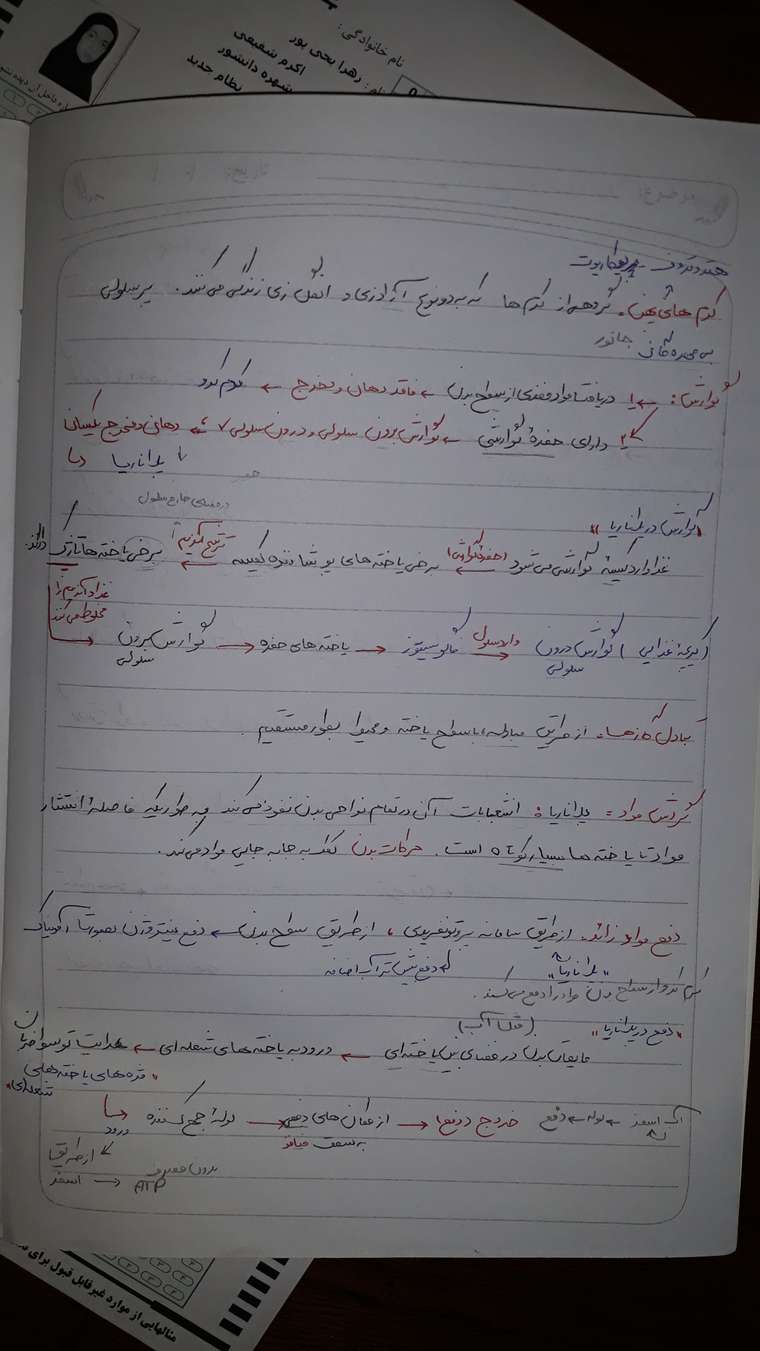 نام خانوادگی:
نام: زهرا یحیی پور
اکرم شفیعی
شهره دانشور
نظام جدید
موضوع:
تاریخ:
کرم های پهن: گروهی از کرم ها که به دو نوع آزادزی و انگل زی زندگی می کنند. پرسلولی
بی مهره جانور
گوارش: ۱ دریافت مواد مغذی از سطح بدن ← فاقد دهان و مخرج ← کرم کدو
۲ دارای حفرهٔ گوارشی ← گوارش برون سلولی و درون سلولی ← دهان و مخرج یکسان
پلاناریا
در فضای خارج سلول
"گوارش در پلاناریا"
غذا وارد کیسهٔ گوارشی می شود (حفره گوارشی) ← برخی یاخته های پوشاننده کیسه ← ترشح آنزیم ← برخی یاخته ها تاژک دارند
غذا و آنزیم را
مخلوط می کند
گوارش برون سلولی → یاخته های حفره → فاگوسیتوز → واکوئول گوارش درون سلولی (کریچهٔ غذایی)
تبادل گازها: از طریق مبادله با سطح یاخته و محیط بطور مستقیم.
گردش مواد: پلاناریا: انشعابات آن در تمام نواحی بدن نفوذ می کند به طوریکه فاصلهٔ انتشار
مواد تا یاخته ها بسیار کوتاه است. حرکات بدن کمک به جابه جایی مواد می کند.
دفع مواد زائد: از طریق سامانه پروتونفریدی، از طریق سطح بدن ← دفع نیتروژن بصورت آمونیاک
"پلاناریا"
دفع بیشتر آب اضافه
از سطح بدن مواد را دفع می کنند.
"دفع در پلاناریا" (آب)
مایعات بدن در فضای بین یاخته ای ← ورود به یاخته های شعله ای ← هدایت توسط ضربان
مژه های یاخته های
شعله ای
ورود لوله جمع کننده ← از کانال های دفعی به سمت منافذ ← خروج (دفع)
لوله ← دفع
از طریق
اسمز → بدون مصرف ATP
مثالهایی از موارد غیرقابل قبول برای